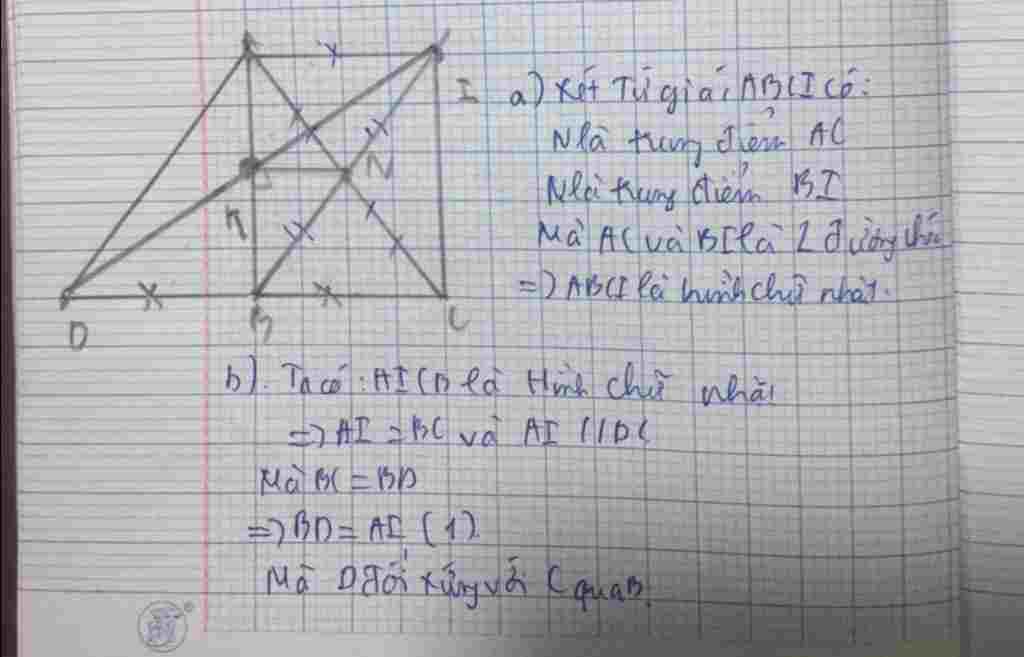 I
N
D
B
C
a) Xét Tứ giác ABCI có:
N là trung điểm AC
N là trung điểm BI
Mà AC và BI là 2 đường chéo
=> ABCI là hình chữ nhật.
b). Ta có: AICB là Hình chữ nhật
=> AI = BC và AI // DC
Mà BC = BD
=> BD = AI (1)
Mà D đối xứng với C qua B.